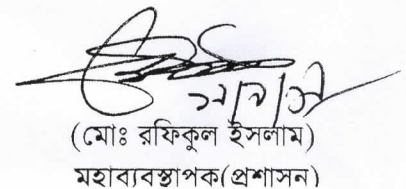 (মোঃ রফিকুল ইসলাম)
মহাব্যবস্থাপক(প্রশাসন)